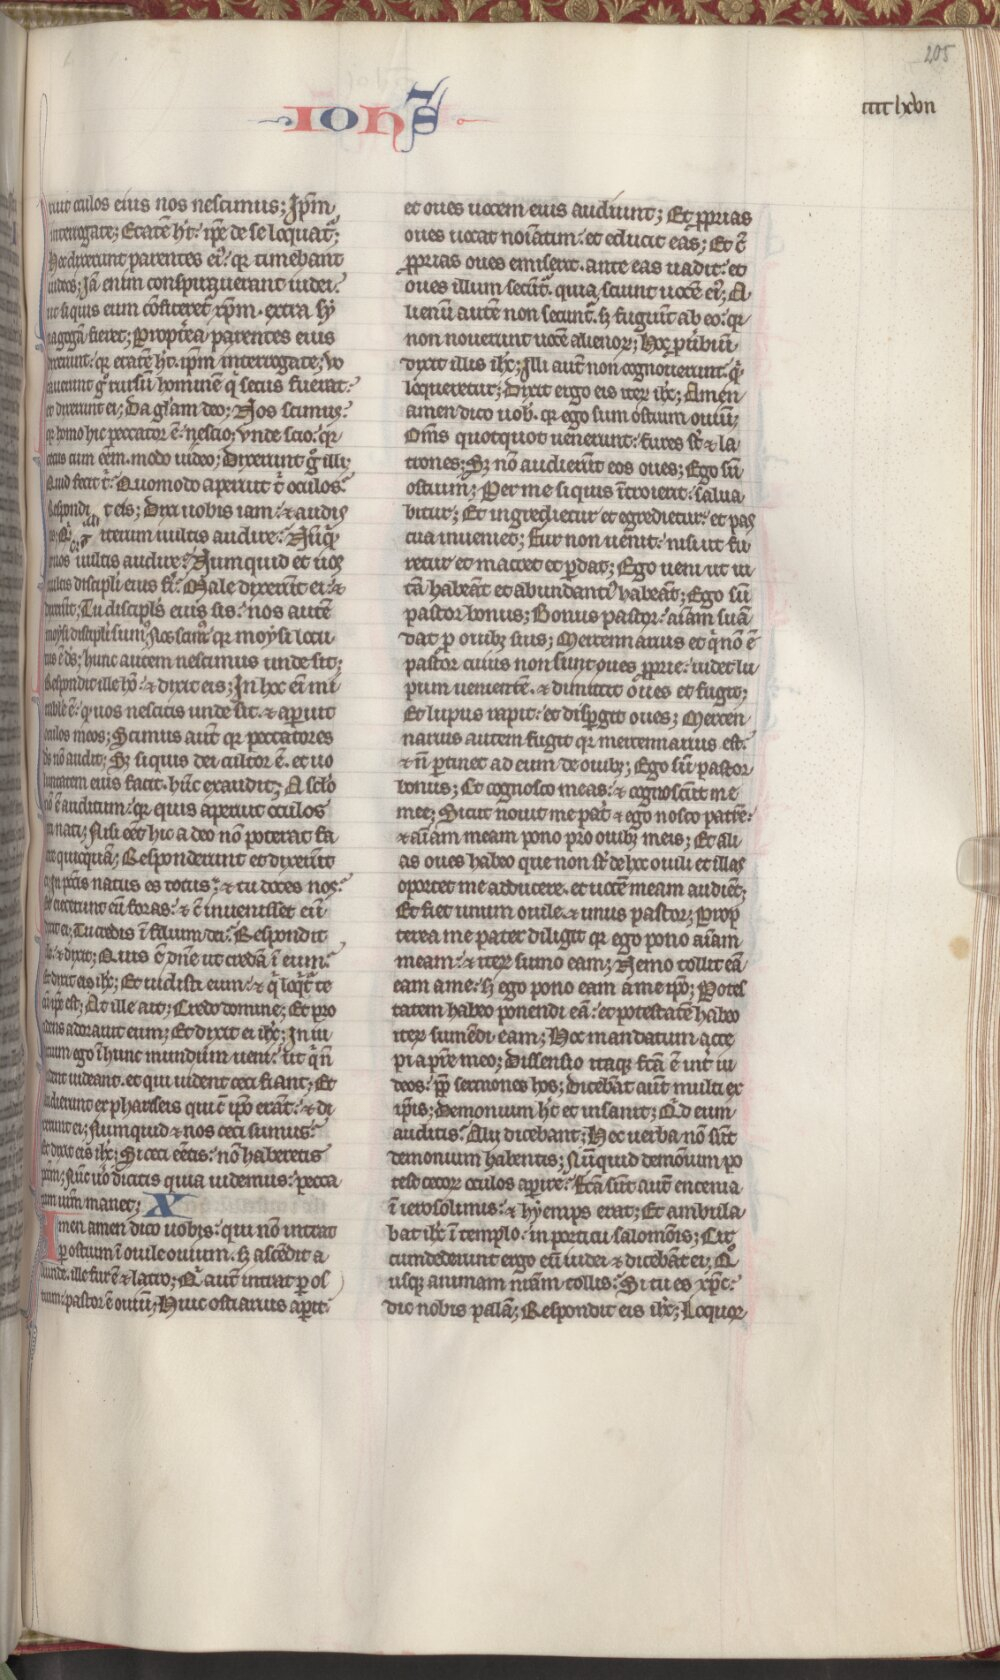 205
IOHS
ruit oculos eius nos nescimus; Ip̄m
interrogate; Etatē ht: ip̄e de se loquat᷑;
Hec dixerunt parentes eī: qr timebant
iudeos; Jā enim conspirauerant iudei:
ut siquis eum cōfiteret᷑ xp̄m. extra sy
nagogā fieret; Propt̄ea parentes eius
dixerunt: qr etatē ht. ip̄m interrogate; Vo
cauerunt g̊ rursū hominē q̄ cecus fuerat:
et dixerunt ei; Da gl̄am deo; Nos scimus:
qr homo hic peccator ē. nescio; vnde scio: qr
cecus cum eēm. modo uideo; Dixerunt g̊ illi;
Quid fecit t᷑: Quomodo aperuit t᷑ oculos:
Respondit eis; Dixi uobis iam: ⁊ audis
tis; Qͥd iterum uultis audire: Nūqͥd
⁊ uos uultis audire: Numquid et uos
uultis discipli eius fi᷑: Male dixerūt ei: ⁊
dixerūt; Tu discipls̄ eius sis: nos autē
moysi discipli sumꝰ; Nos scimꝰ qr moysi locu
tus ē d̄s; hunc autem nescimus unde sit;
Respondit ille hō: ⁊ dixit eis; In hoc ē mi
rabile ē: quos nescitis unde sit. ⁊ aperuit
oculos meos; Scimus aut̄ qr peccatores
ds nō audit; Sꝫ siquis dei cultor ē. et uo
luntatem eius facit. hūc exaudit; A sclo
nō ē auditum: qr quis aperuit oculos
ceci nati; Nisi eēt hic a deo nō poterat fa
cere quicquā; Responderunt et dixerūt
ei; In pctīs natus es totus: ⁊ tu doces nos:
Et eiecerunt eū foras: ⁊ c̄ inuenisset eū
dixit ei; Tu credis ī filium dei: Respondit
ille: ⁊ dixit; Quis ē dn̄e ut credā ī eum:
Et dixit eis ihc; Et uidisti eum: ⁊ q̄ loq̄t᷑ te
cū ip̄e est; At ille ait; Credo domine; Et pro
cidens adorauit eum; Et dixit ei ihc; In iu
dicium ego ī hunc mundum ueni: ut q̄ n̄
uident uideant. et qui uident ceci fiant; Et
audierunt ex phariseis qui c̄ ip̄o erāt: ⁊ di
xerunt ei; Numquid ⁊ nos ceci sumus:
Et dixit eis ihc; Si ceci eētis: nō haberetis
pctm̄; Nūc ůo dicitis quia uidemus: pecca
tum ur̄m manet; X
Amen amen dico uobis: qui nō intrat
ꝑ ostium ī ouile ouium. sꝫ ascēdit a
liunde. ille fur ē ⁊ latro; Q̄ aut̄ intrat ꝑ os
tium: pastor ē ouiū; Huic ostiarius aperit:
et oues uocem eius audiunt; Et ꝓprias
oues uocat noīatim: et educit eas; Et c̄
ꝓprias oues emiserit. ante eas uadit: et
oues illum secūt᷑: quia sciunt uocē eī; A
lienū autē non secunt᷑. sꝫ fugiūt ab eo: qr
non nouerunt uocē alienoꝝ; Hoc ꝓuībiū
dixit illis ihc; Illi aut̄ non cognouerunt: q̄
loqueretur; Dixit ergo eis iteꝝ ihc; Amen
amen dico uob. qr ego sum ostium ouiū;
Om̄s quotquot uenerunt: fures st̄ ⁊ la
trones; Sꝫ nō audierūt eos oues; Ego sū
ostium; Per me siquis ītroierit: salua
bitur; Et ingredietur et egredietur: et pas
cua inueniet; Fur non uenit: nisi ut fu
retur et mactet et ꝑdat; Ego ueni ut ui
tā habeāt et abundantiꝰ habeāt; Ego sū
pastor bonus; Bonus pastor: aīam suā
dat ꝑ ouibꝫ suis; Mercennarius et q̄ nō ē
pastor cuius non sunt oues ꝓprie: uidet lu
pum uenientē. ⁊ dimittit oues et fugit;
Et lupus rapit: et disꝑgit oues; Mercen
narius autem fugit qr mercennarius est:
⁊ n̄ ꝑtinet ad eum de ouibꝫ; Ego sū pastor
bonus; Et cognosco meas: ⁊ cognoscūt me
mee; Sicut nouit me pat᷑ ⁊ ego nosco patrē:
⁊ aīam meam pono pro ouibꝫ meis; Et ali
as oues habeo que non st̄ de hoc ouili et illas
oportet me adducere. et uocē meam audiēt;
Et fiet unum ouile. ⁊ unus pastor; Prop
terea me pater diligit qr ego pono aīam
meam: ⁊ iteꝝ sumo eam; Nemo tollit eā
eam a me: sꝫ ego pono eam a me ip̄o; Potes
tatem habeo ponendi eā: et potestatē habeo
iteꝝ sumēdi eam; Hoc mandatum acce
pi a pr̄e meo; Dissensio itaqꝫ fcā ē int᷑ iu
deos: ꝓp̄ sermones hos; Dicebāt aut̄ multi ex
ip̄is; Demonium ht et insanit; Qͥd eum
auditis: Alij dicebant; Hec uerba nō sūt
demonium habentis; Nūquid demōium po
test cecoꝝ oculos aperire: Fcā sūt aut̄ encenia
ī ierosolimis: ⁊ hyemps erat; Et ambula
bat ihc ī templo. in porticu salomōis; Cir
cumdederunt ergo eū iudei ⁊ dicebāt ei; Q̊
usqꝫ animam nr̄am tollis: Si tu es xp̄c:
dic nobis palā; Respondit eis ihc; Loquor